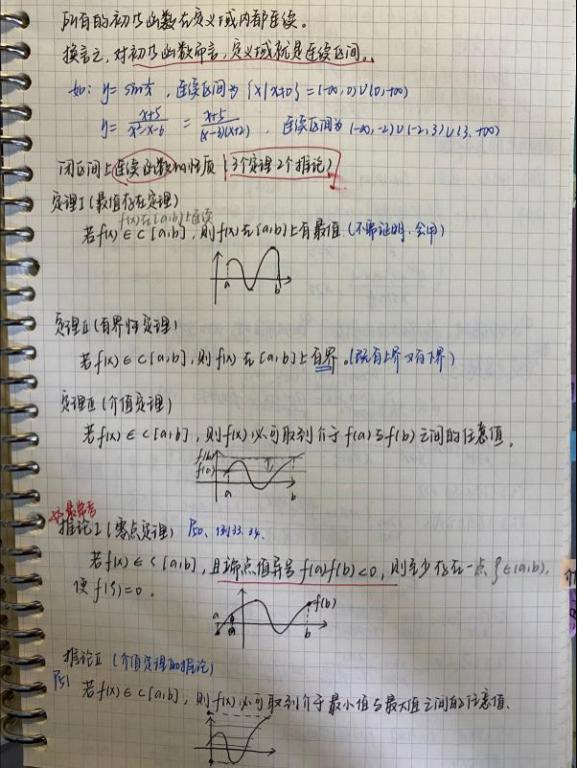 所有的初等函数在定义域内都连续。
换言之，对初等函数而言，定义域就是连续区间。
如：y=sin 1/x，连续区间为{x|x≠0}=(-∞,0)∪(0,+∞)
y=(x+5)/(x²-x-6)=(x+5)/((x-3)(x+2))，连续区间为(-∞,-2)∪(-2,3)∪(3,+∞)
闭区间上连续函数的性质(3个定理2个推论)
定理I(最值存在定理)
f(x)在[a,b]上连续
若f(x)∈C[a,b]，则f(x)在[a,b]上有最值(不需证明，会用)
a b
定理II(有界性定理)
若f(x)∈C[a,b]，则f(x)在[a,b]上有界。(既有上界又有下界)
定理III(介值定理)
若f(x)∈C[a,b]，则f(x)必可取到介于f(a)与f(b)之间的任意值。
f(b)
f(a)
a b
最常考
推论I(零点定理) P50、
若f(x)∈C[a,b]，且端点值异号f(a)f(b)<0，则至少存在一点ξ∈(a,b)，
使f(ξ)=0。
a f(b)
b
推论II(介值定理的推论)
P51
若f(x)∈C[a,b]，则f(x)必可取到介于最小值与最大值之间的任意值.